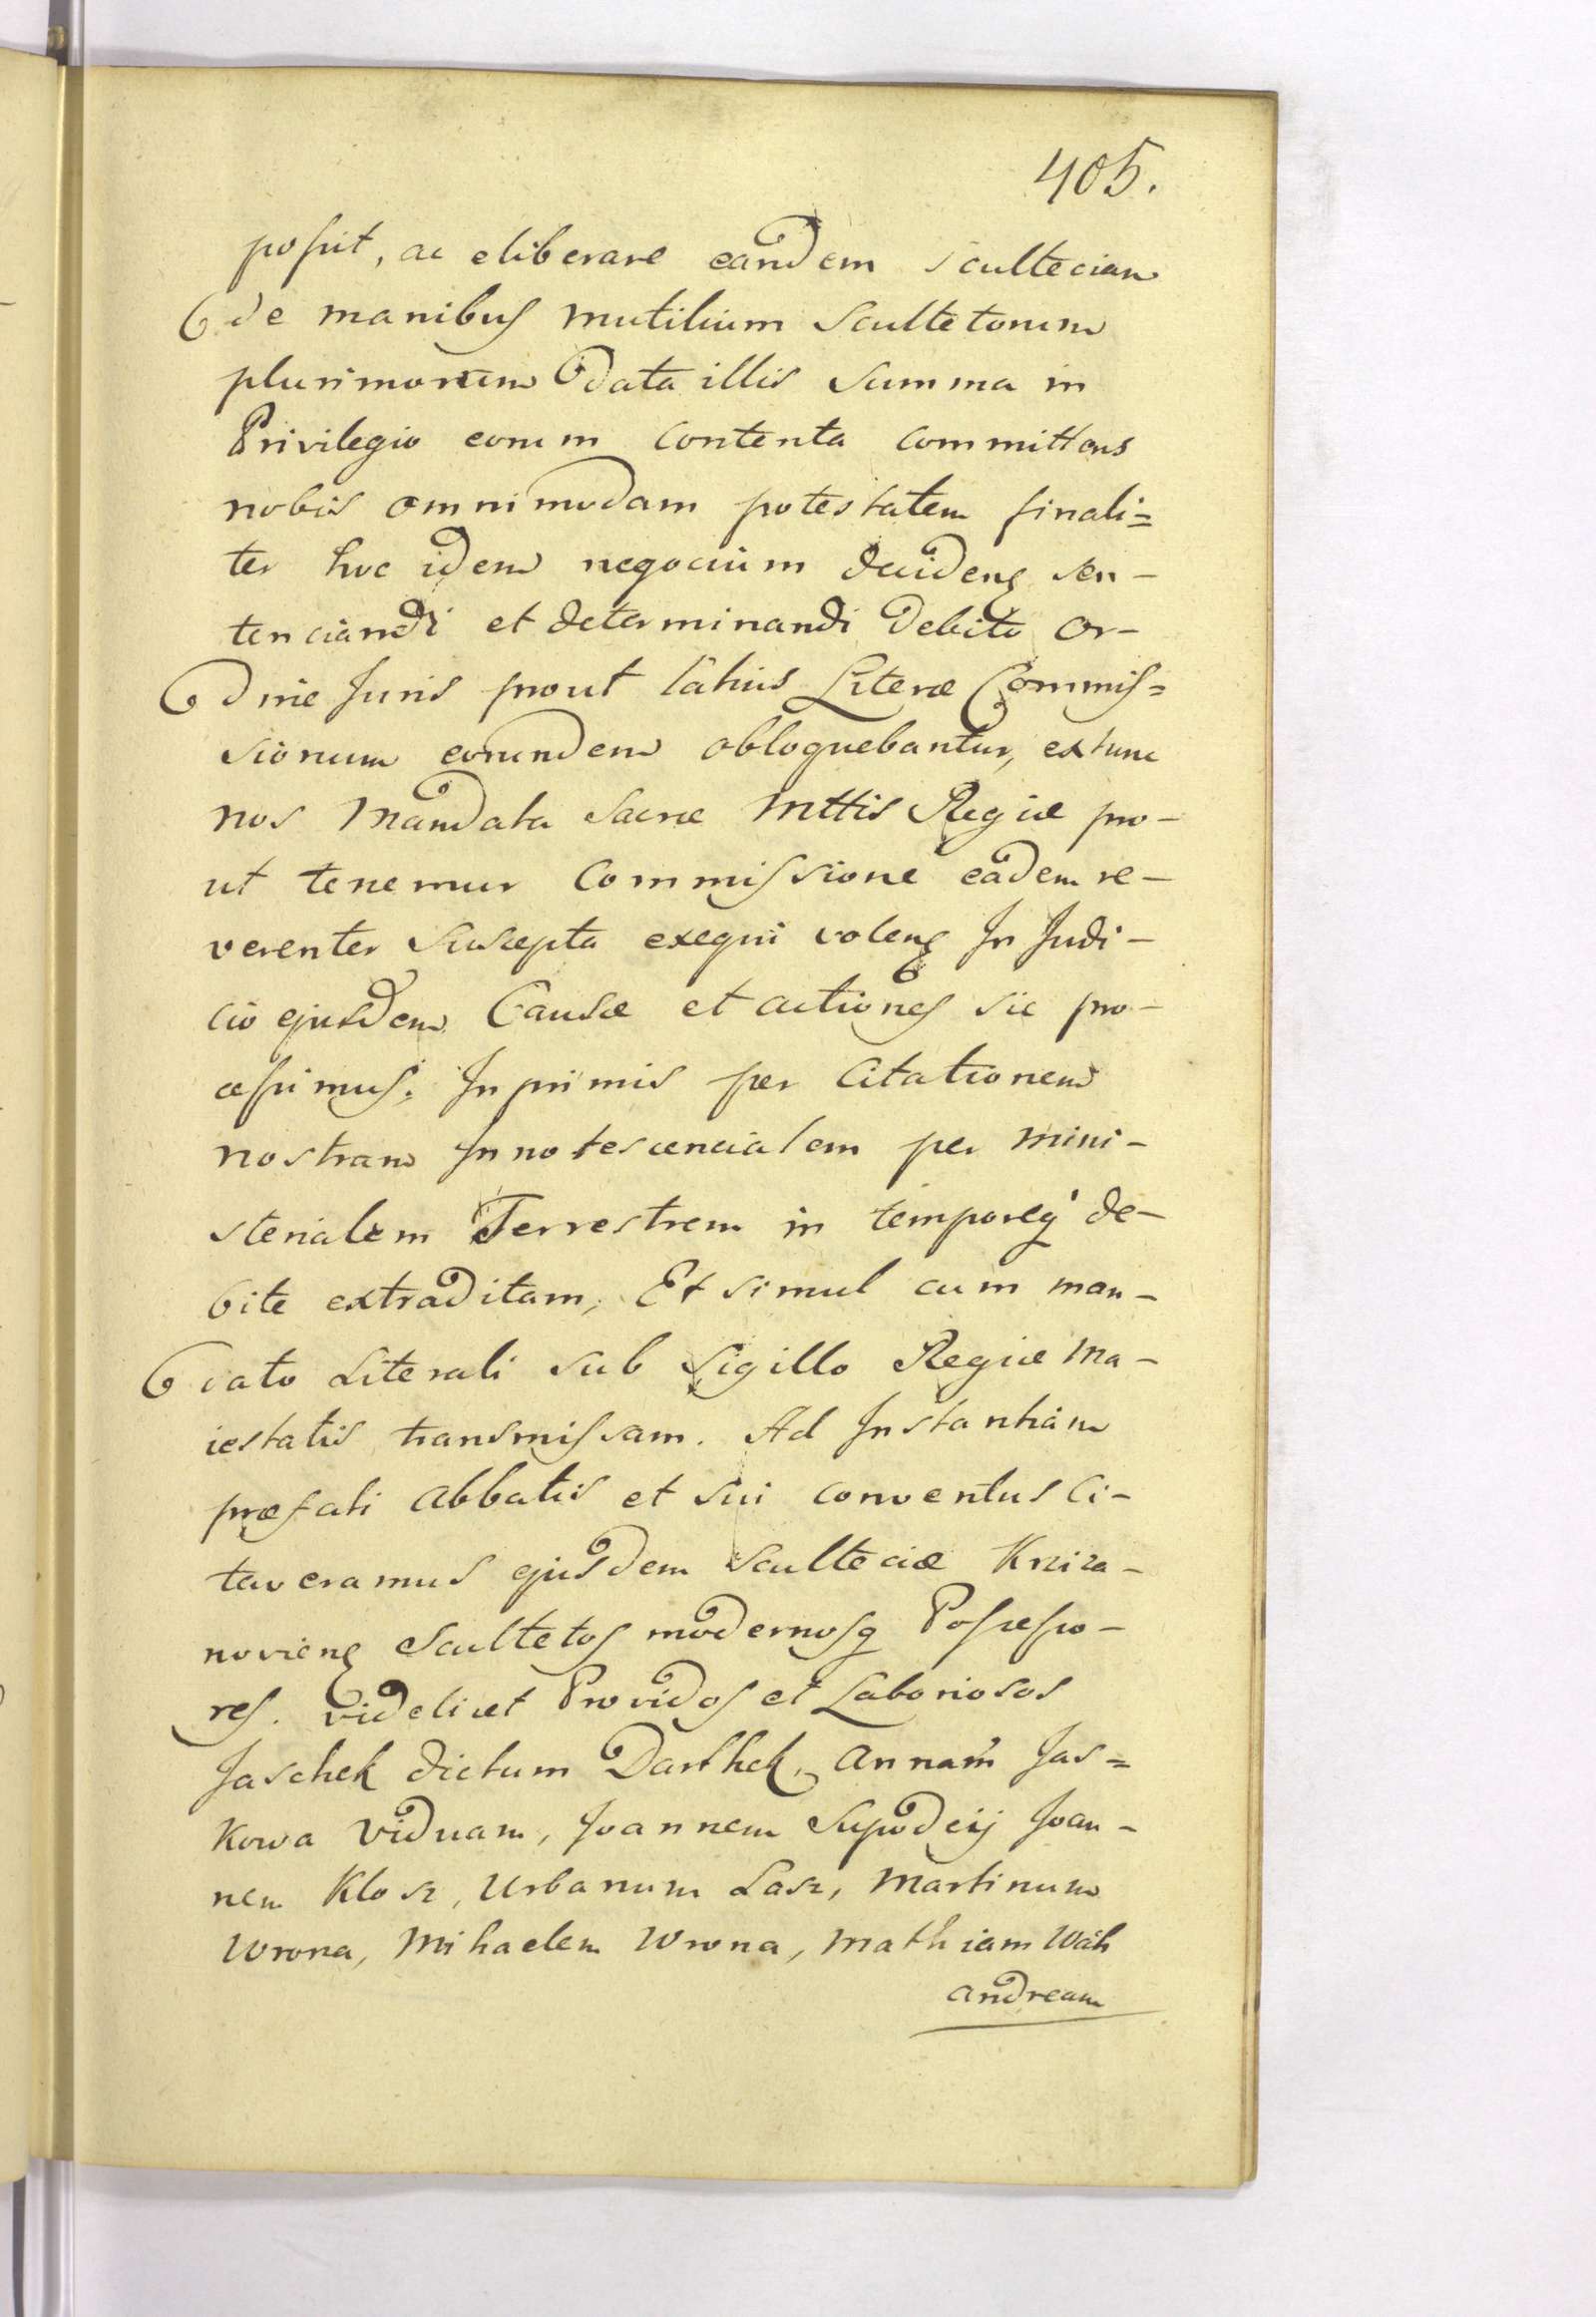 405.
possit, ac eliberare eandem sculteciam
de manibus mutilium Scultetorum
plurimorum data illis Summa in
Privilegio eorum contenta committens
nobis omnimodam potestatem finali=
ter hoc idem negocium decidens sen-
tenciandi et determinandi debito or-
dine Juris prout latius Literæ Commis=
sionum eorundem obloquebantur, extunc
nos Mandata Sacræ Mttis Regiæ pro-
ut tenemur Commissione eadem re-
verenter Suscepta exequi volens In Judi-
cio ejusdem Causæ et actiones sic pro-
cessimus. Inprimis per Citationem
nostram Innotescencialem per Mini-
sterialem Terrestrem in temporeq de-
bite extraditam, Et simul cum man-
dato Literali Sub Sigillo Regiæ Ma-
iestatis transmissam. Ad Instantiam
præfati Abbatis et Sui conventus Ci-
taveramus ejusdem Scultecia Kniza-
noviens Scultetos modernosq Possesso-
res. Videlicet Providos et Laboriosos
Jaschek dictum Darthek, Annam Jas=
kowa Viduam, Joannem Joan-
nem Klosz, Urbanum Lasz, Martinum
Wrona, Mihaelem Wrona, Mathiam
Andream